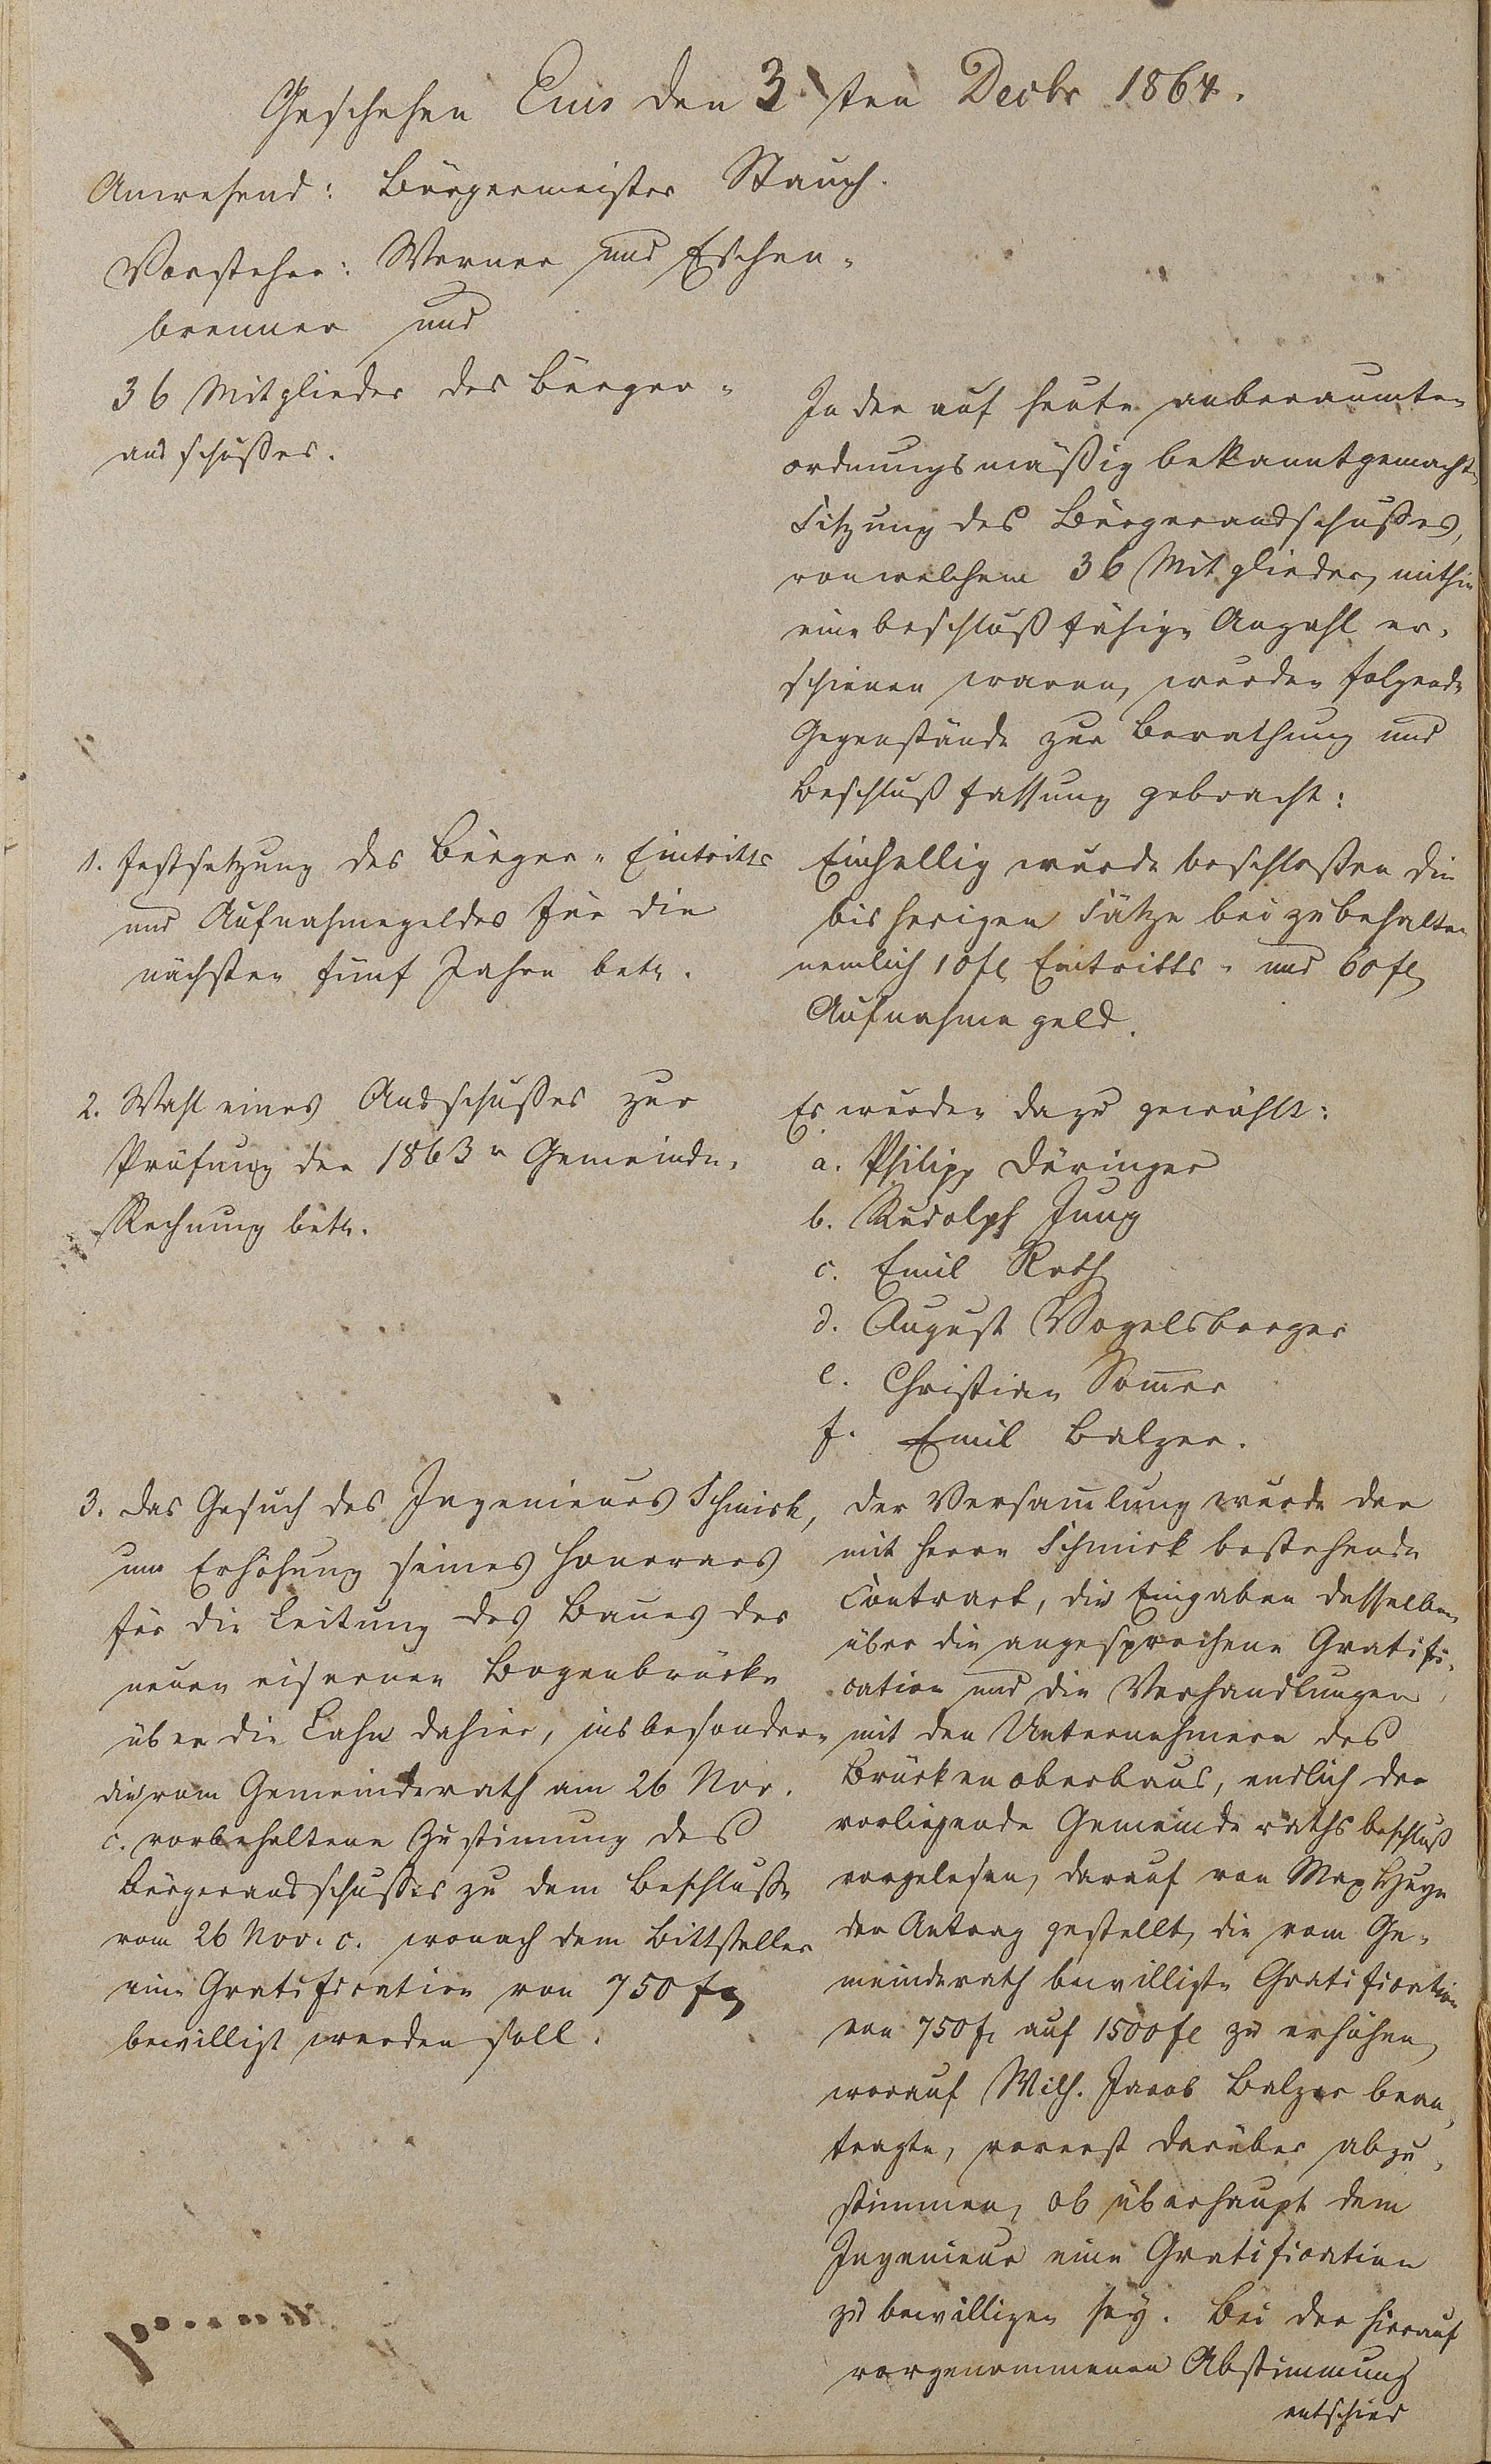 Geschehen Ems den 3ten Decbr 1864.
Anwesend: Bürgermeister Stauch.
Vorsteher: Werner und Eschen-
brenner und
36 Mitglieder des Bürger-
ausschußes.
In der auf heute anberaumten
ordnungsmäßig bekanntgemachten
Sitzung des Bürgerausschußes,
von welchem 36 Mitglieder, mithin
eine beschlußfähige Anzahl er-
schienen waren, wurden folgende
Gegenstände zur Berathung und
Beschlußfassung gebracht:
1. Festsetzung des Bürger-Eintritts
und Aufnahmegeldes für die
nächsten fünf Jahre betr.
Einhellig wurde beschloßen die
bisherigen Sätze beizubehalten
nemlich 10 fl Eintritts- und 60 fl
Aufnahmegeld.
2. Wahl eines Ausschußes zur
Prüfung der 1863r Gemeinde-
Rechnung betr.
Es wurden dazu gewählt:
a. Philipp Döringer
b. Rudolph Jung
c. Emil Roth
d. August Vogelsberger
e. Christian Som̅er
f. Emil Balzer.
3. Das Gesuch des Ingenieurs Schmick,
um Erhöhung seines Honorars
für die Leitung des Baues der
neuen eisernen Bogenbrücke
über die Lahn dahier, insbesondere
die vom Gemeinderath am 26 Nov.
c. vorbehaltene Zustim̅ung des
Bürgerausschußes zu dem Beschluße
vom 26 Nov. c. wonach dem Bittsteller
eine Gratification von 750 fl
bewilligt werden soll.
Der Versam̅lung wurde der
mit Herrn Schmick bestehende
Contract, die Eingaben desselben
über die angesprochene Gratifi-
cation und die Verhandlungen
mit den Unternehmern des
Brückenoberbaus, endlich der
vorliegende Gemeinderathsbeschluß
vorgelesen, darauf von Max
der Antrag gestellt, die vom Ge-
meinderath bewilligte Gratification
von 750 fl auf 1500 fl zu erhöhen,
worauf Wilh. Jacob Balzer bean-
tragte, vorerst darüber abzu-
stimmen, ob überhaupt dem
Ingenieur eine Gratification
zu bewilligen sey. Bei der hierauf
vorgenommenen Abstimmung
entschied